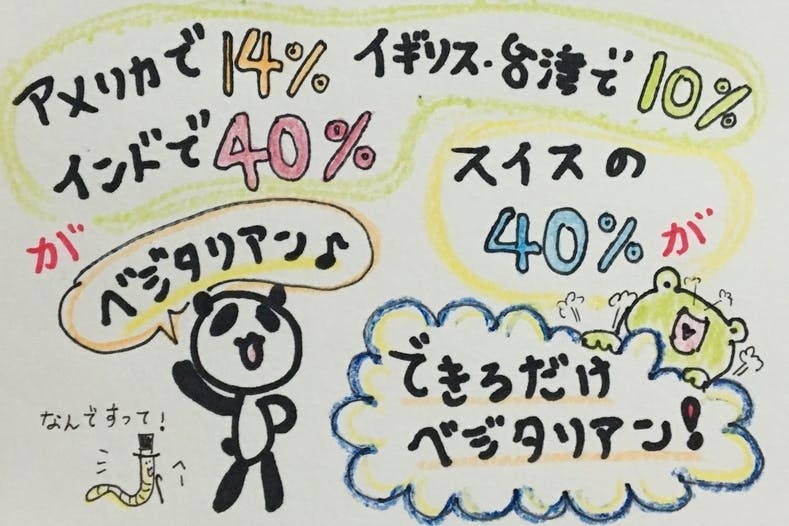 アメリカで14% イギリス・台湾で10%
インドで40%
が
ベジタリアン♪
スイスの
40%が
できるだけ
ベジタリアン!
なんですって!
へー